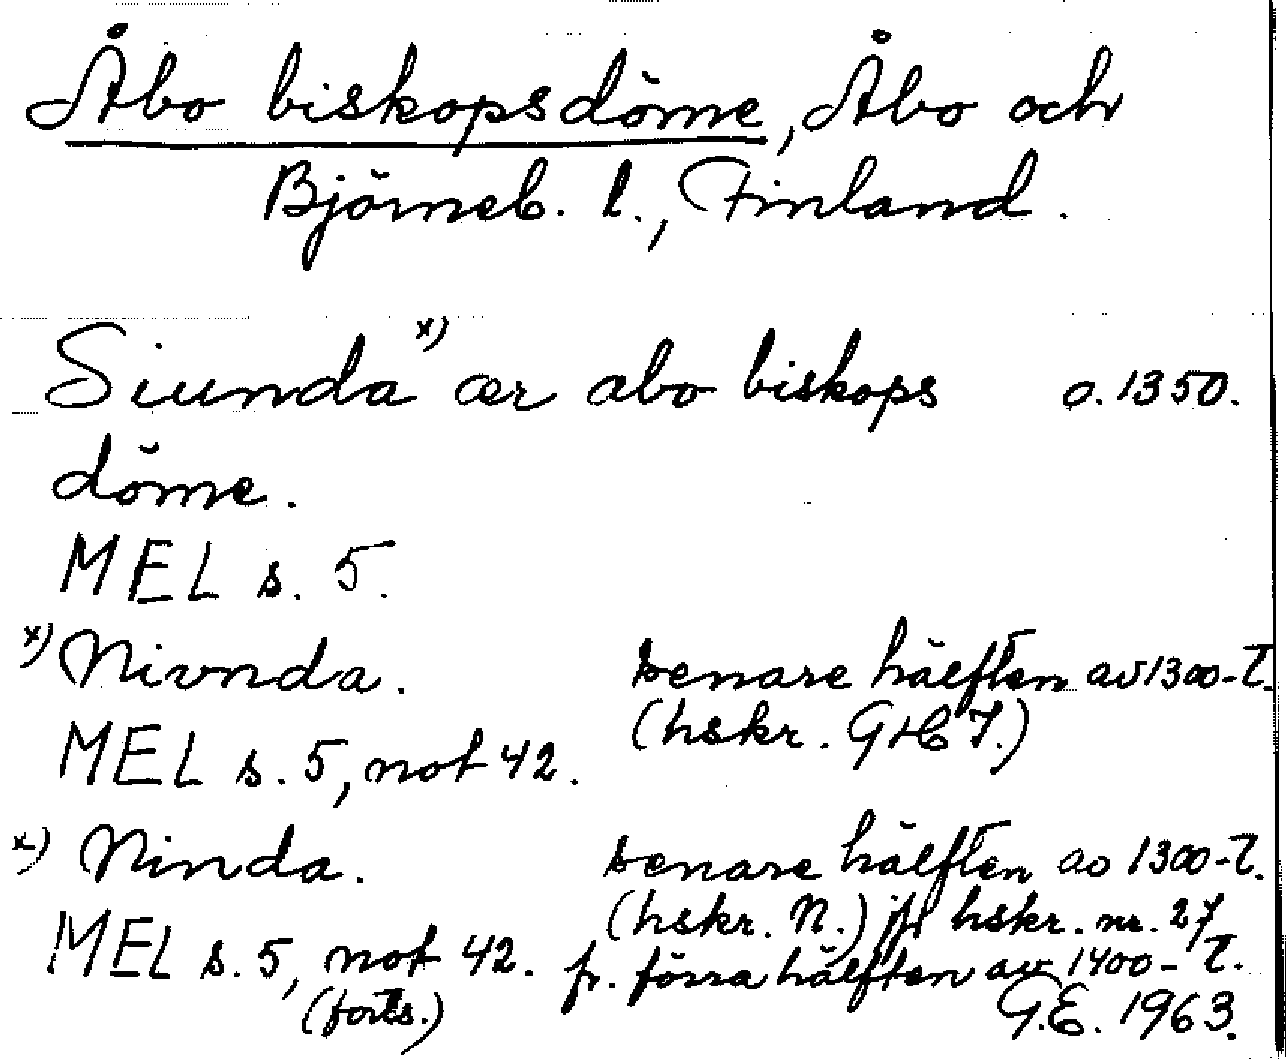 Åbo biskopsdöme, Åbo och
Björneb. l., Finland.
Siunda x) ær abo biskops o. 1350.
döme.
MEL s. 5.
x) Nivnda. Senare hälften av 1300-t.
MEL s. 5, not 42. (hskr.
x) Ninda. Senare hälften av 1300-t.
(hskr. N.) jfr hskr. nr. 27
MEL s. 5, not 42. fr. förra hälften av 1400-t.
(forts.) G.E. 1963.